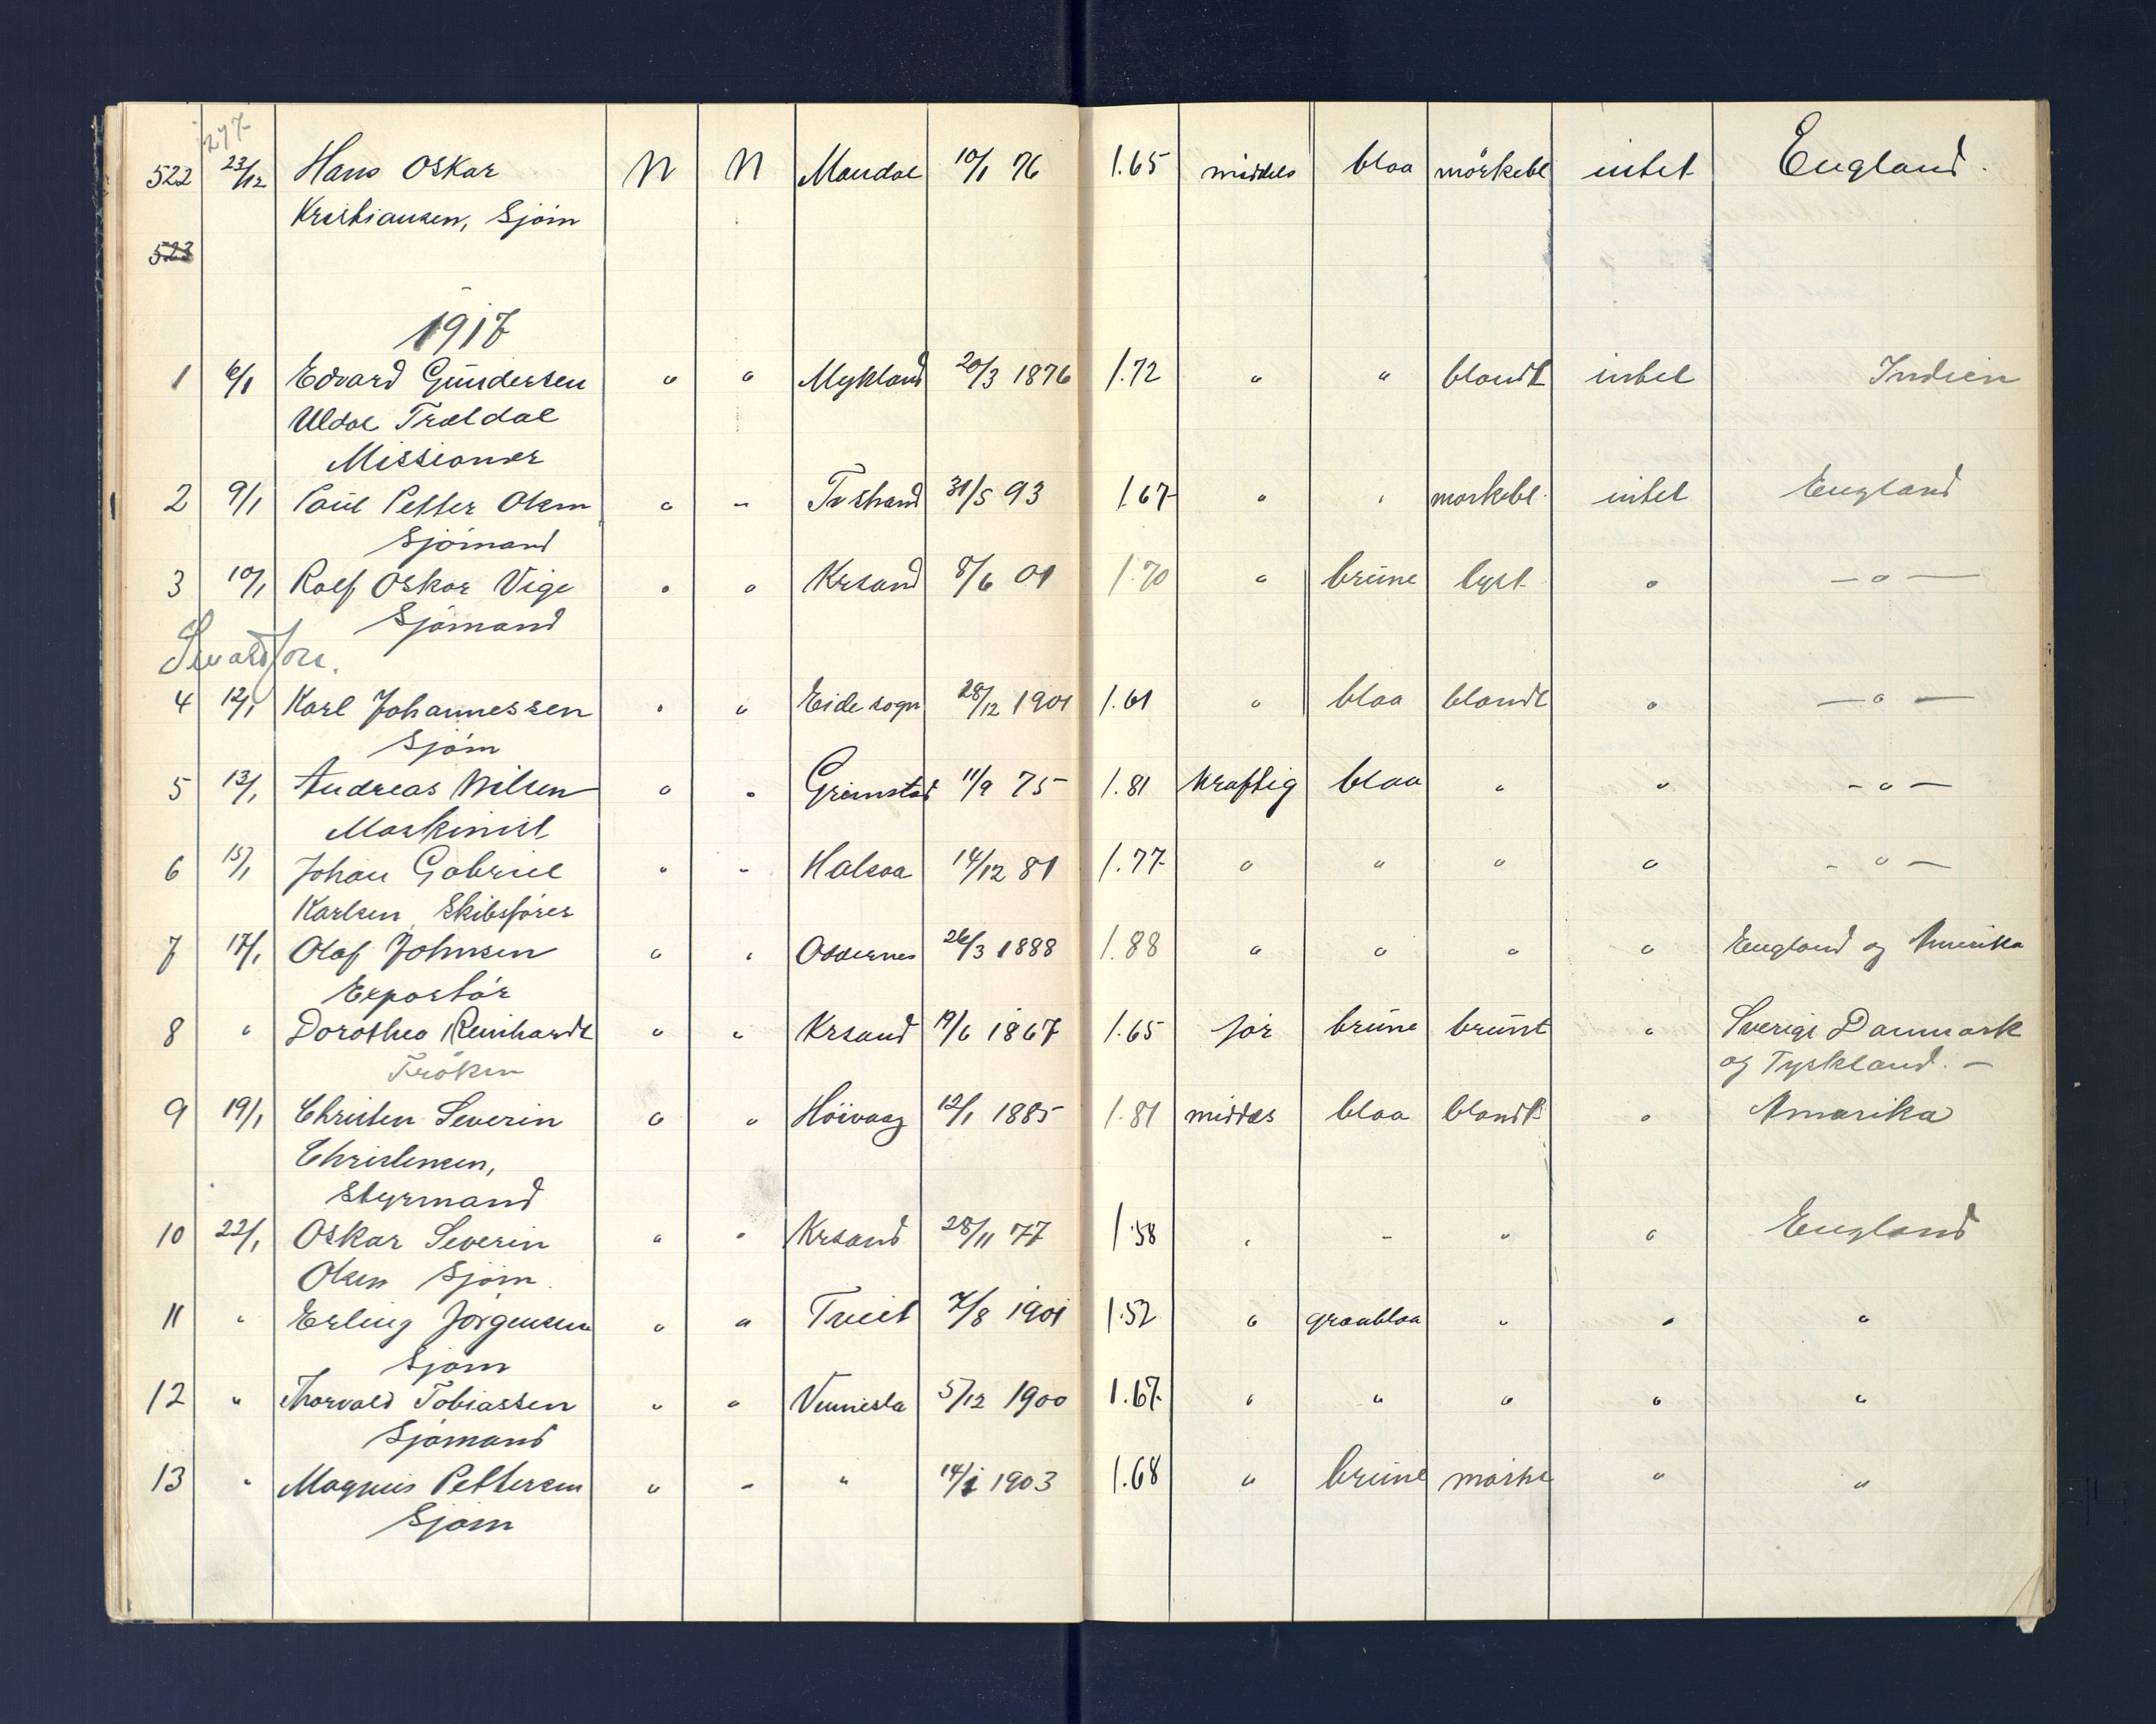 297
522 23/12 Hans Oskar N N Mandal 10/1 76 1.65 middels blaa mörkebl intet England.
Kristiansen, Sjöm
523
1917
1 6/1 Edvard Gundersen " " Mykland 20/3 1876 1.72 " " blondt intet Indien
Uldal Trældal
Missionær
2 9/1 Paul Petter Olsen " " Tvstrand 31/5 93 1.67 " " morkebl. intet England
Sjömand
3 10/1 Rolf Oskar Vige " " Krsand 8/6 01 1.70 " brune lyst " — " —
Sjömand
4 12/1 Karl Johannessen " " Eide sogn 28/12 1901 1.61 " blaa blondt " — " —
Sjöm
5 13/1 Andreas Nilsen " " Grimstad 11/9 75 1.81 kraftig blaa " " - " -
Maskinist
6 15/1 Johan Gabriel " " Halsaa 14/12 81 1.77 " " " " - " -
Karlsen, Skibsförer
7 17/1 Olaf Johnsen " " Oddernes 26/3 1888 1.88 " " " " England og Amerika
Exportör
8 " Dorothea Reinhardt " " Krsand 19/6 1867 1.65 för brune brunt " Sverige Danmark
Fröken og Tyskland. —
9 19/1 Christen Severin " " Höivaag 12/1 1885 1.81 middels blaa blondt " Amerika
Christensen,
Styrmand
10 22/1 Oskar Severin " " Krsand 28/11 77 1.58 " - " " England
Olsen Sjöm.
11 " Erling Jörgensen " " Tveit 7/8 1901 1.52 " graablaa " " "
Sjöm
12 " Thorvald Tobiassen " " Vennesla 5/12 1900 1.67 " " " " "
Sjömand
13 " Magnus Pettersen " - " 14/1 1903 1.68 " brune mörke " "
Sjöm